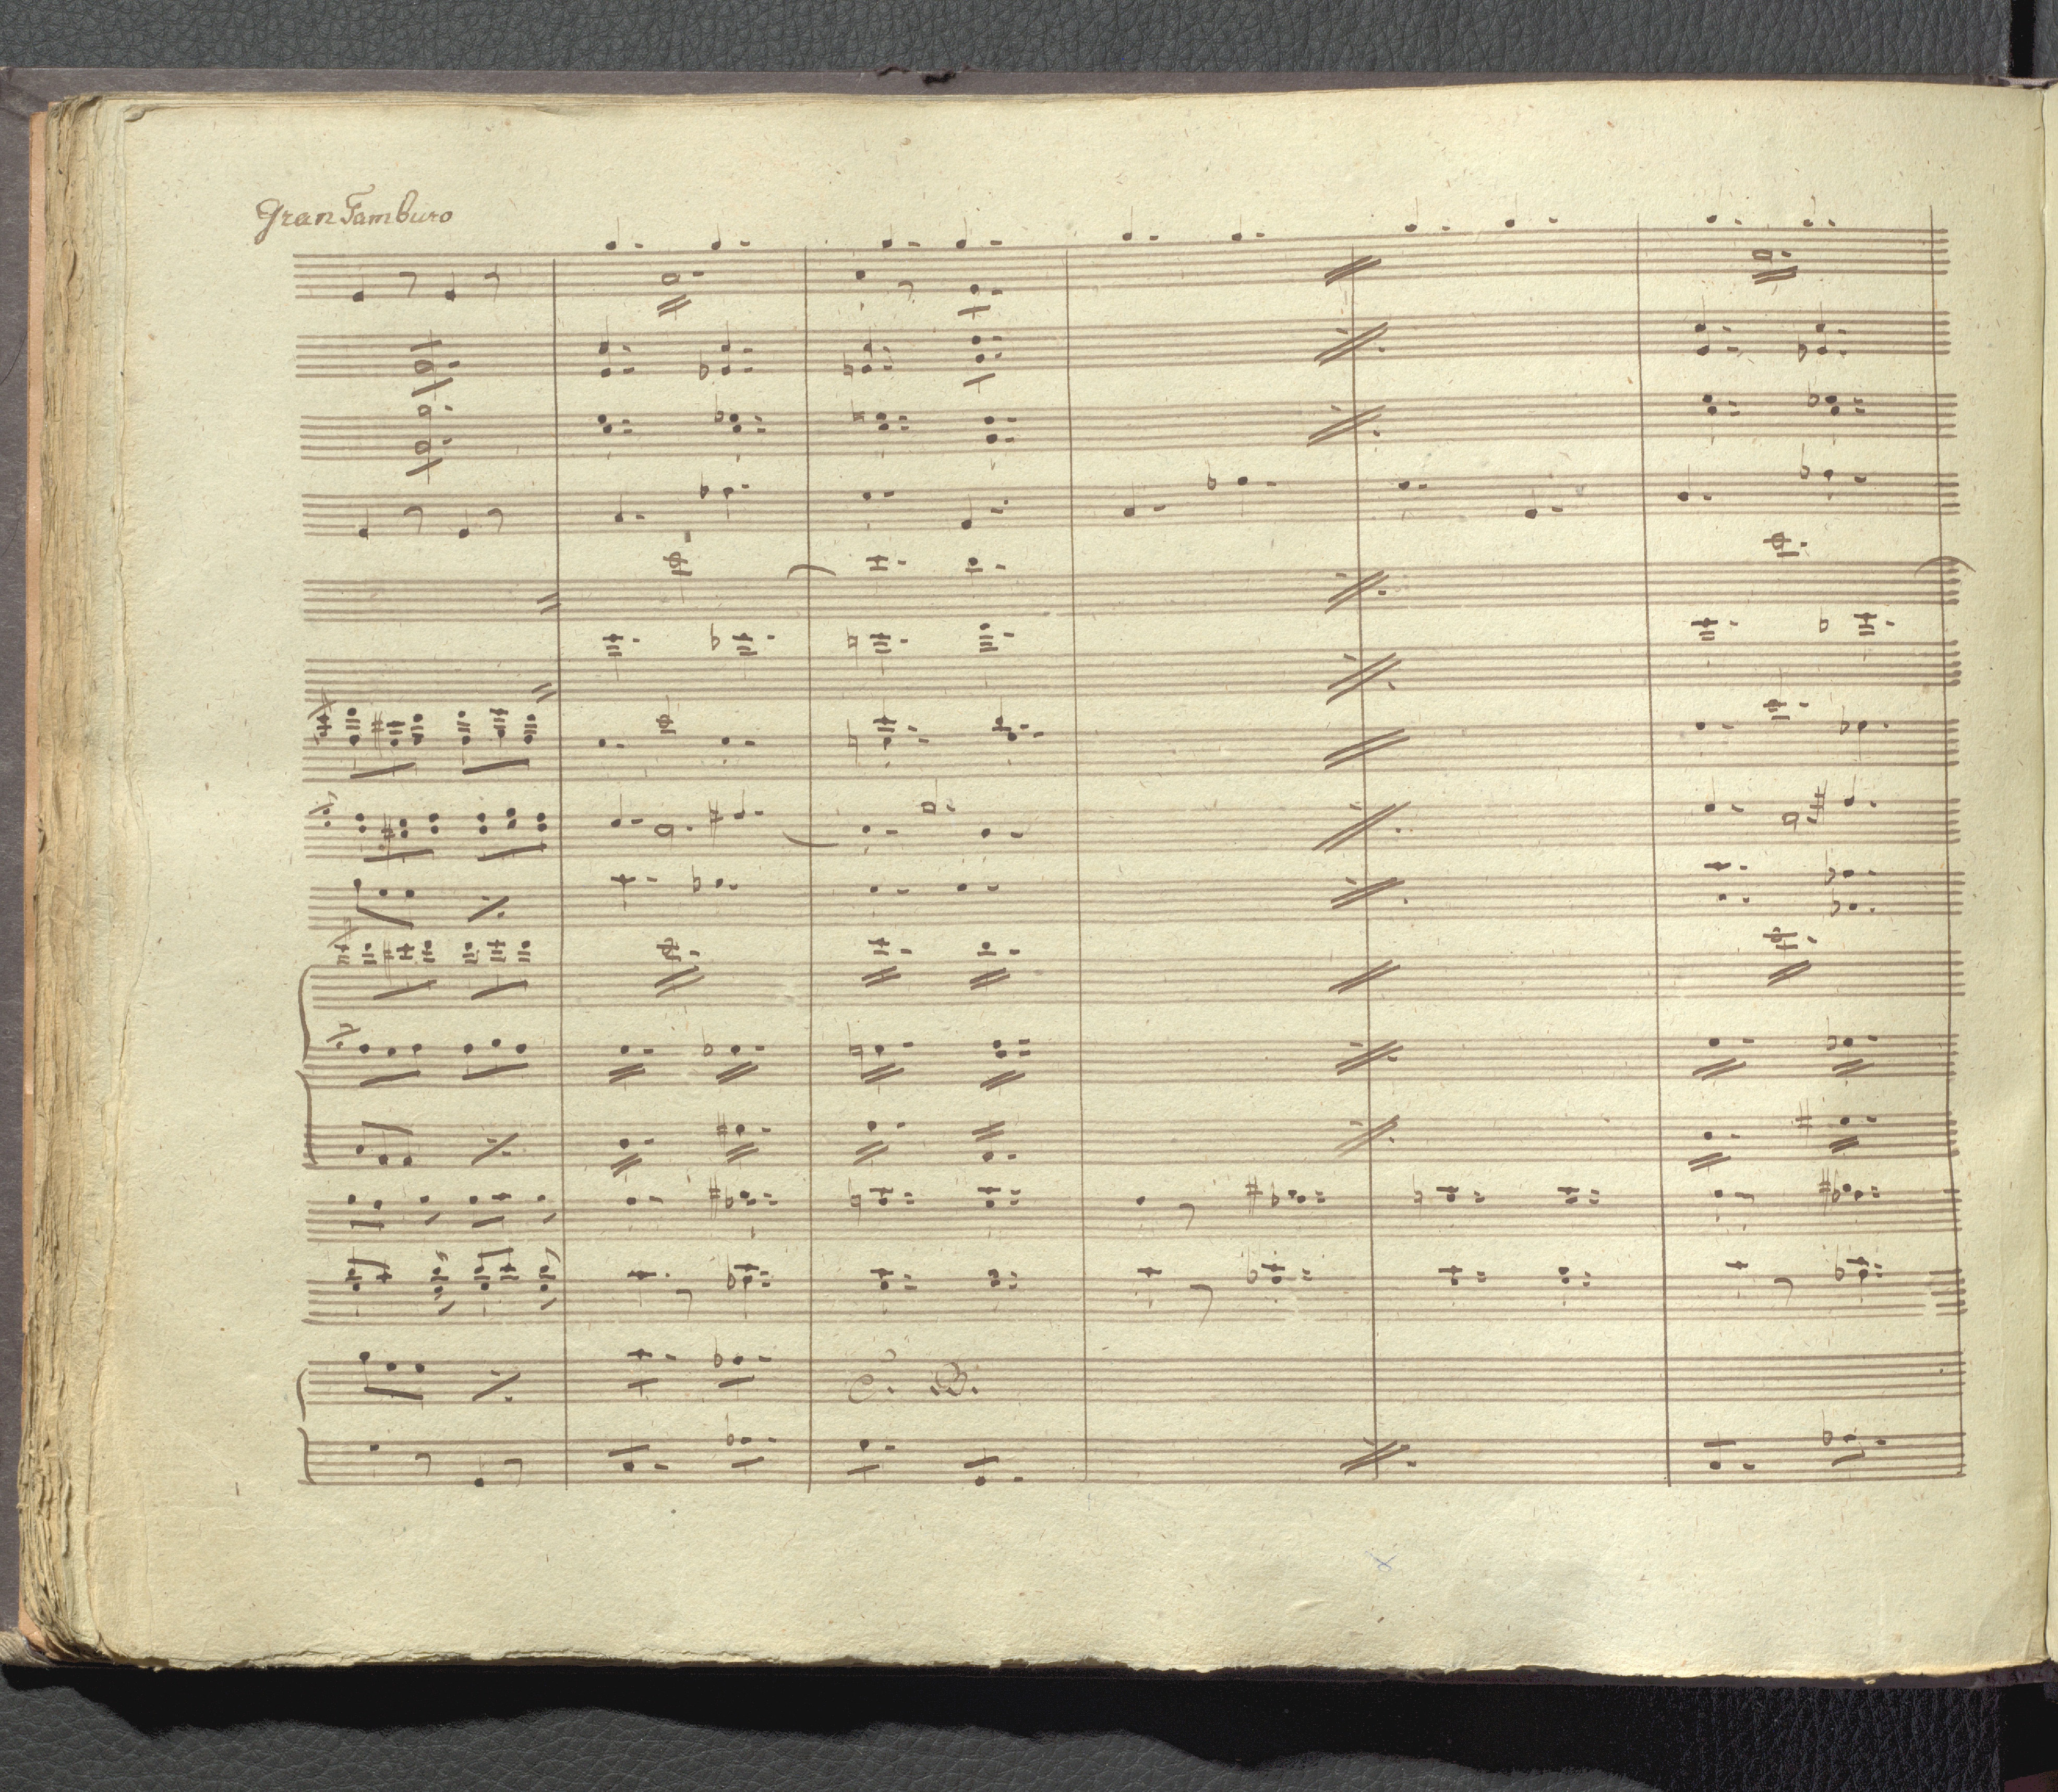 Gran Tamburo
C. B.